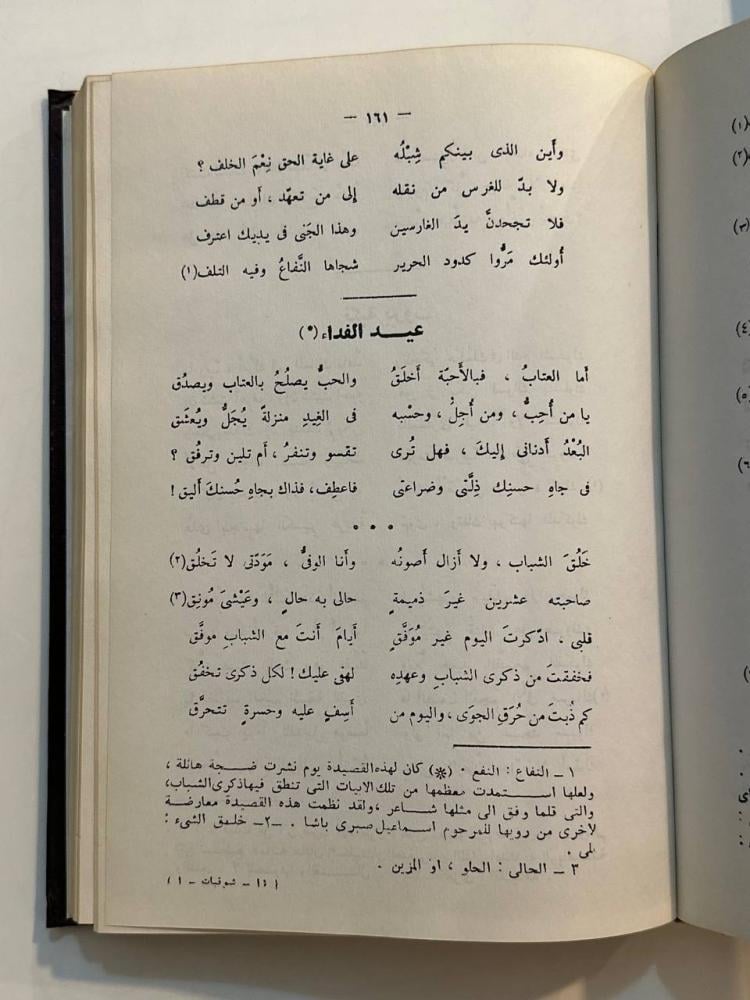 — ١٦١ —
وأَين الذى بينكم شِبْلُه على غاية الحق نِعْمَ الخلف ؟
ولا بدّ للغرس من نقله إلى من تعهّد ، أَو من قطف
فلا تجحدنَّ يدَ الغارسين وهذا الجَنى فى يديك اعترف
أُولئك مَرُّوا كدود الحرير شجاها النَّفاعُ وفيه التلف(١)
عيــد الفداء (*)
أما العتابُ ، فبالأَحبّة أَخلَقُ والحبُّ يصلُحُ بالعتاب ويصدُق
يا من أُحِبُّ ، ومن أُجِلُّ ، وحسْبه فى الغِيدِ منزلةً يُجَلُّ ويُعشَق
البُعْدُ أَدنانى إِليكَ ، فهل تُرى تقسو وتنفرُ ، أَم تلين وترفُق ؟
فى جاهِ حسنِك ذِلَّتى وضراعتى فاعطِف، فذاك بجاهِ حُسنكَ أَليق !
• • •
خَلُقَ الشبابُ ، ولا أَزال أَصونُه وأَنا الوفىُّ ، مَوَدّتى لا تَخلُق(٢)
صاحبته عشرين غيرَ ذميمةٍ حالى به حالٍ ، وعَيْشىَ مُونِق(٣)
قلبى ، ادّكرتَ اليوم غير مُوَفَّقٍ أَيامَ أَنتَ مع الشبابِ موفَّق
فخفقتَ من ذكرى الشبابِ وعهدِه لهفى عليك ! لكل ذكرى تخفُق
كم ذُبتَ من حُرَقِ الجوَى ، واليوم من أَسِفٍ عليه وحسرةٍ تتحرَّق
١ ــ النفاع : النفع . (*) كان لهذه القصيدة يوم نشرت ضــجة هائلة ،
ولعلها اســتمدت معظمها من تلك الابيات التى تنطق فيها ذكرى الشباب،
والتى قلما وفق الى مثلها شــاعر ، ولقد نظمت هذه القصيدة معارضة
لاخرى من رويها للمرحوم اسماعيل صبرى باشا . ــ٢ــ خلــق الشىء :
بلى .
٣ ــ الحالى : الحلو ، او المزين .
( ١١ ــ شوقيات ــ ١ )